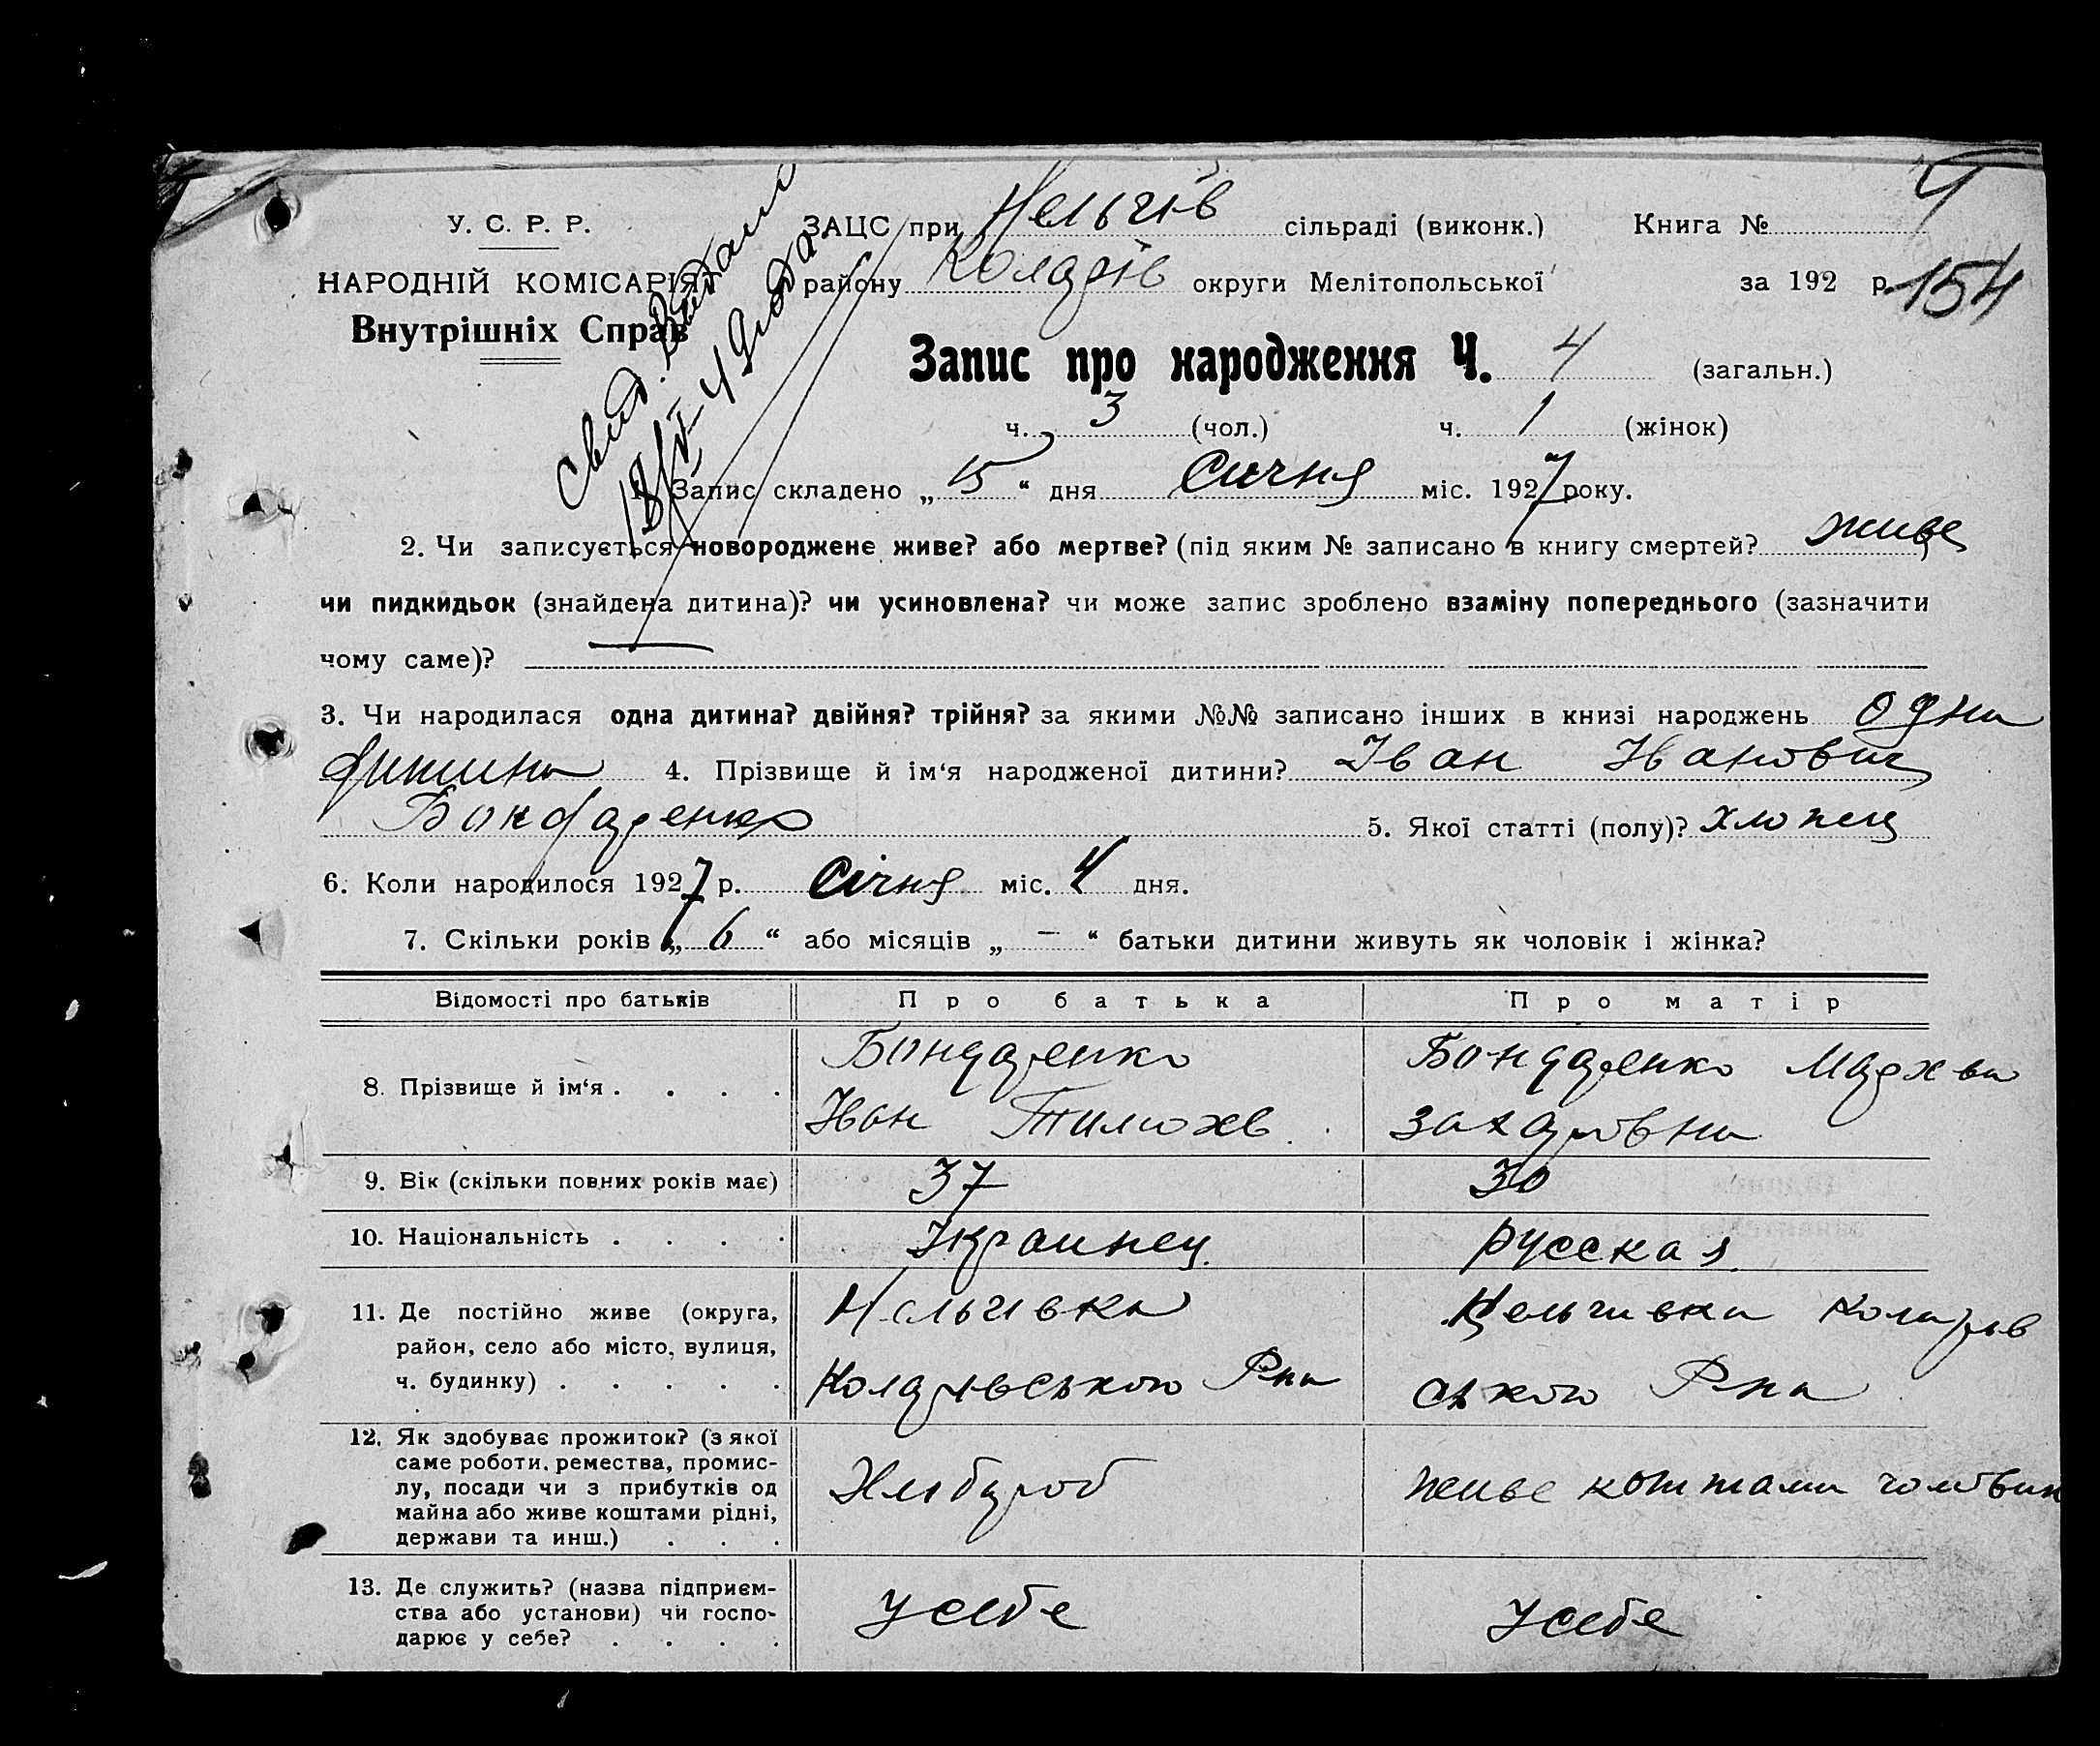 4
У. С. Р. Р.
ЗАЦС при Нельгів сільраді (виконк.) Книга №
НАРОДНІЙ КОМІСАРІЯТ району Коларів округи Мелітопольської за 192 р. 154
Внутрішніх Справ
Запис про народження Ч. 4 (загальн.)
ч. 3 (чол.) ч. 1 (жінок)
Свид. выдано
1. Запис складено „15“ дня Сичня міс. 1927 року.
2. Чи записується новороджене живе? або мертве? (під яким № записано в книгу смертей? живе
чи пидкидьок (знайдена дитина)? чи усиновлена? чи може запис зроблено взаміну попереднього (зазначити
чому саме)? —
3. Чи народилася одна дитина? двійня? трійня? за якими №№ записано інших в книзі народжень одна
дитина 4. Прізвище й ім‘я народженої дитини? Іван Иванович
Бондаренко 5. Якої статті (полу)? хлопец
6. Коли народилося 1927 р. Січня міс. 4 дня.
7. Скільки років „6“ або місяців „—“ батьки дитини живуть як чоловік і жінка?
Відомості про батьків Про батька Про матір
8. Прізвище й ім‘я . . . . Бондаренко Иван Тимохв. Бондаренко Мархва Захаровна
9. Вік (скільки повних років має) 37 30
10. Національність . . . . Украинец русская
11. Де постійно живе (округа, Нельгивка Нельгивка Коларов
район, село або місто, вулиця,
ч. будинку) . . . . . Коларивського Р-на ського Р-на
12. Як здобуває прожиток? (з якої
саме роботи, ремества, промис-
лу, посади чи з прибутків од Хлибороб живе коштами чоловик
майна або живе коштами рідні,
держави та инш.) . . .
13. Де служить? (назва підприєм-
ства або установи) чи госпо- у себе у себе
дарює у себе? . . . .